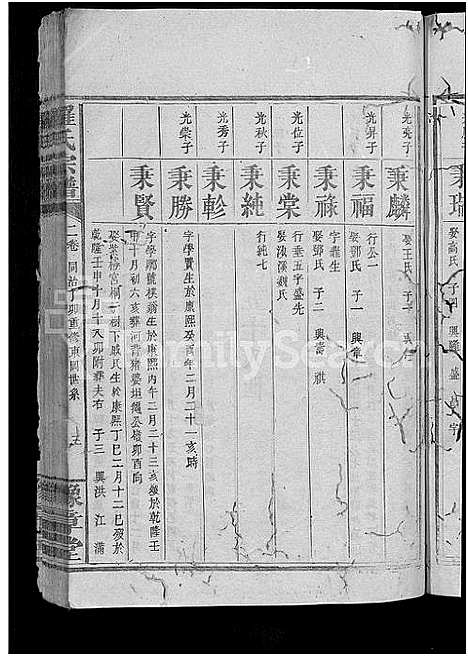 秉瑞
光亮子
秉麟
娶王氏 子一
光昇子
秉福
行公一
娶鄧氏 子一 興章
秉祿
字龕生
娶鄧氏 子二 興濤 祺
光位子
秉棠
行垂五字盛先
娶湊溪魏氏
光秋子
秉純
行純七
光秀子
秉軫
光榮子
秉勝
字學賈生於康熙癸酉年二月二十一亥時
秉賢
字學鄉號樸翁生於康熙丙午二月二十三亥歿於乾隆壬
申十月初六亥葬河背猪婆坦鐵公嶺卯酉向
娶裝榜宮桐子樹下戚氏生於康熙丁巳二月十二巳歿於
乾隆壬申十月十八卯附葬夫右 子三 興洪 江 滿
羅氏宗譜
二卷 同治丁卯重修東岡世系
豫章堂
FamilySearch